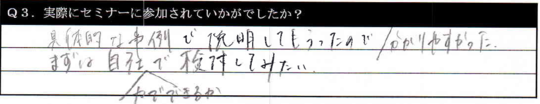 Q3．実際にセミナーに参加されていかがでしたか？
具体的な事例で説明してもらったので 分かりやすかった．
まずは自社で検討してみたい．
でできるか